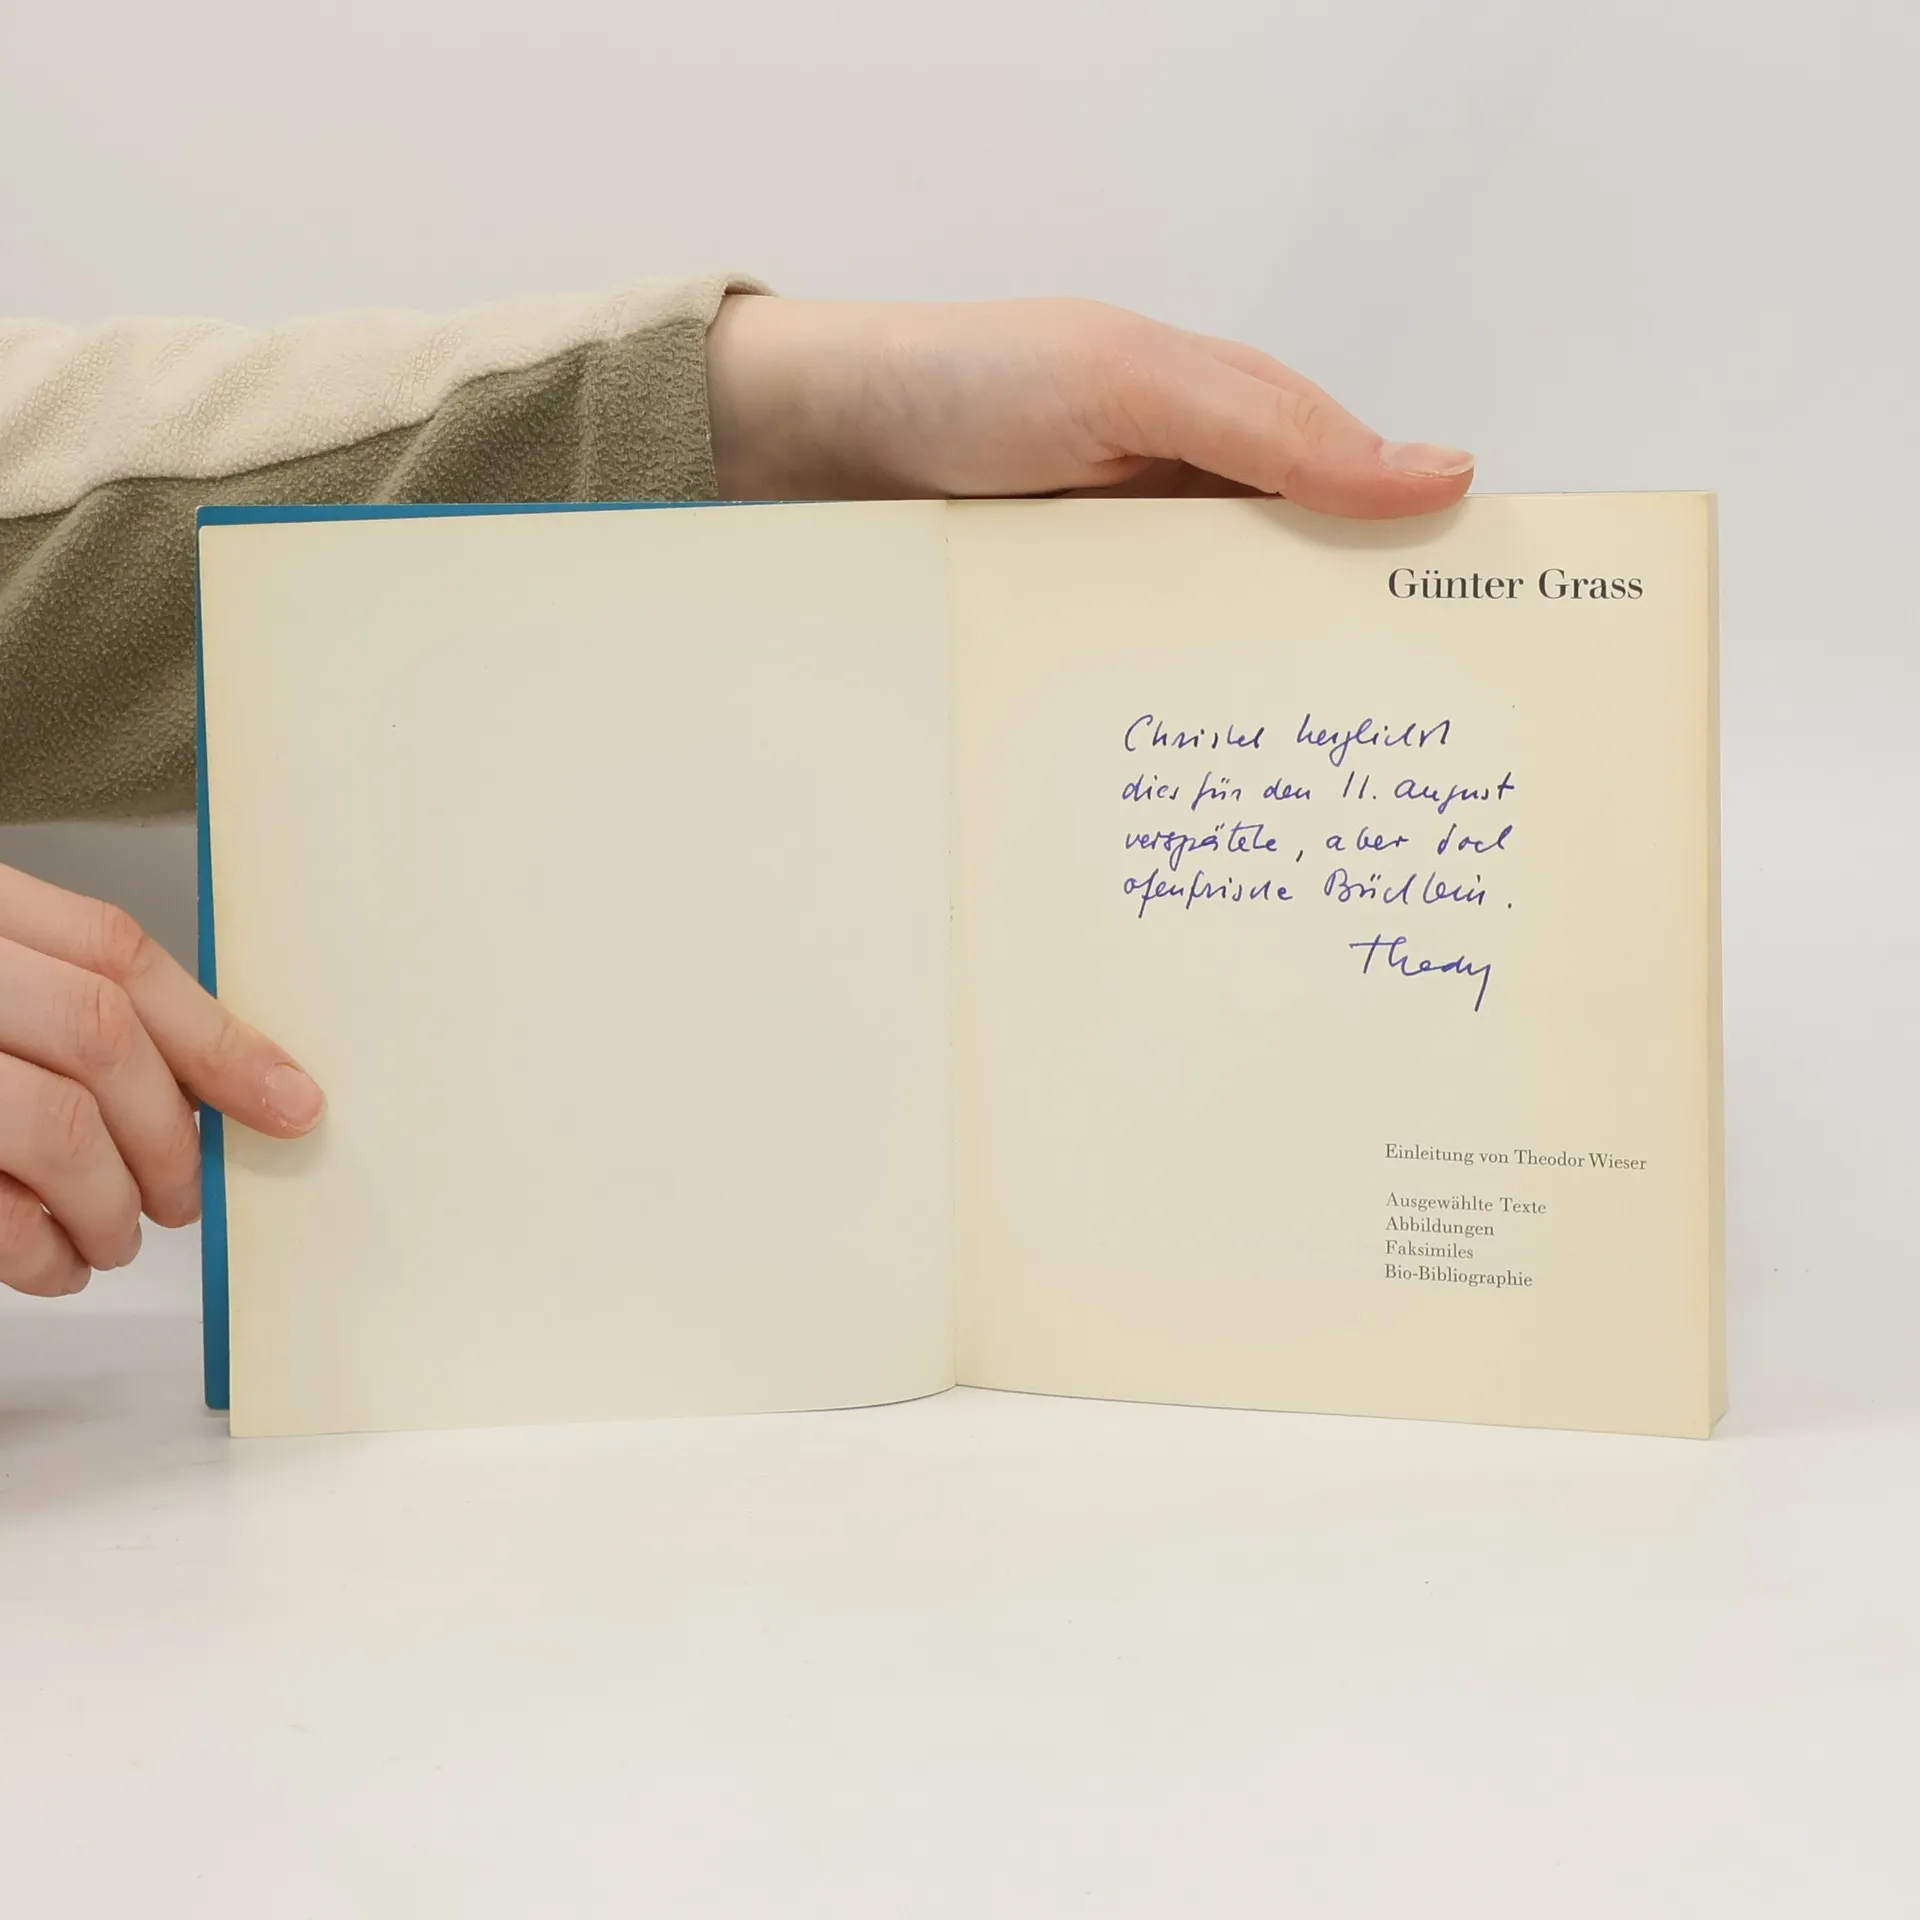 Günter Grass
Christel herzlichst
dies für den 11. August
verspätete, aber doch
ofenfrische Büchlein.
Thedy
Einleitung von Theodor Wieser
Ausgewählte Texte
Abbildungen
Faksimiles
Bio-Bibliographie